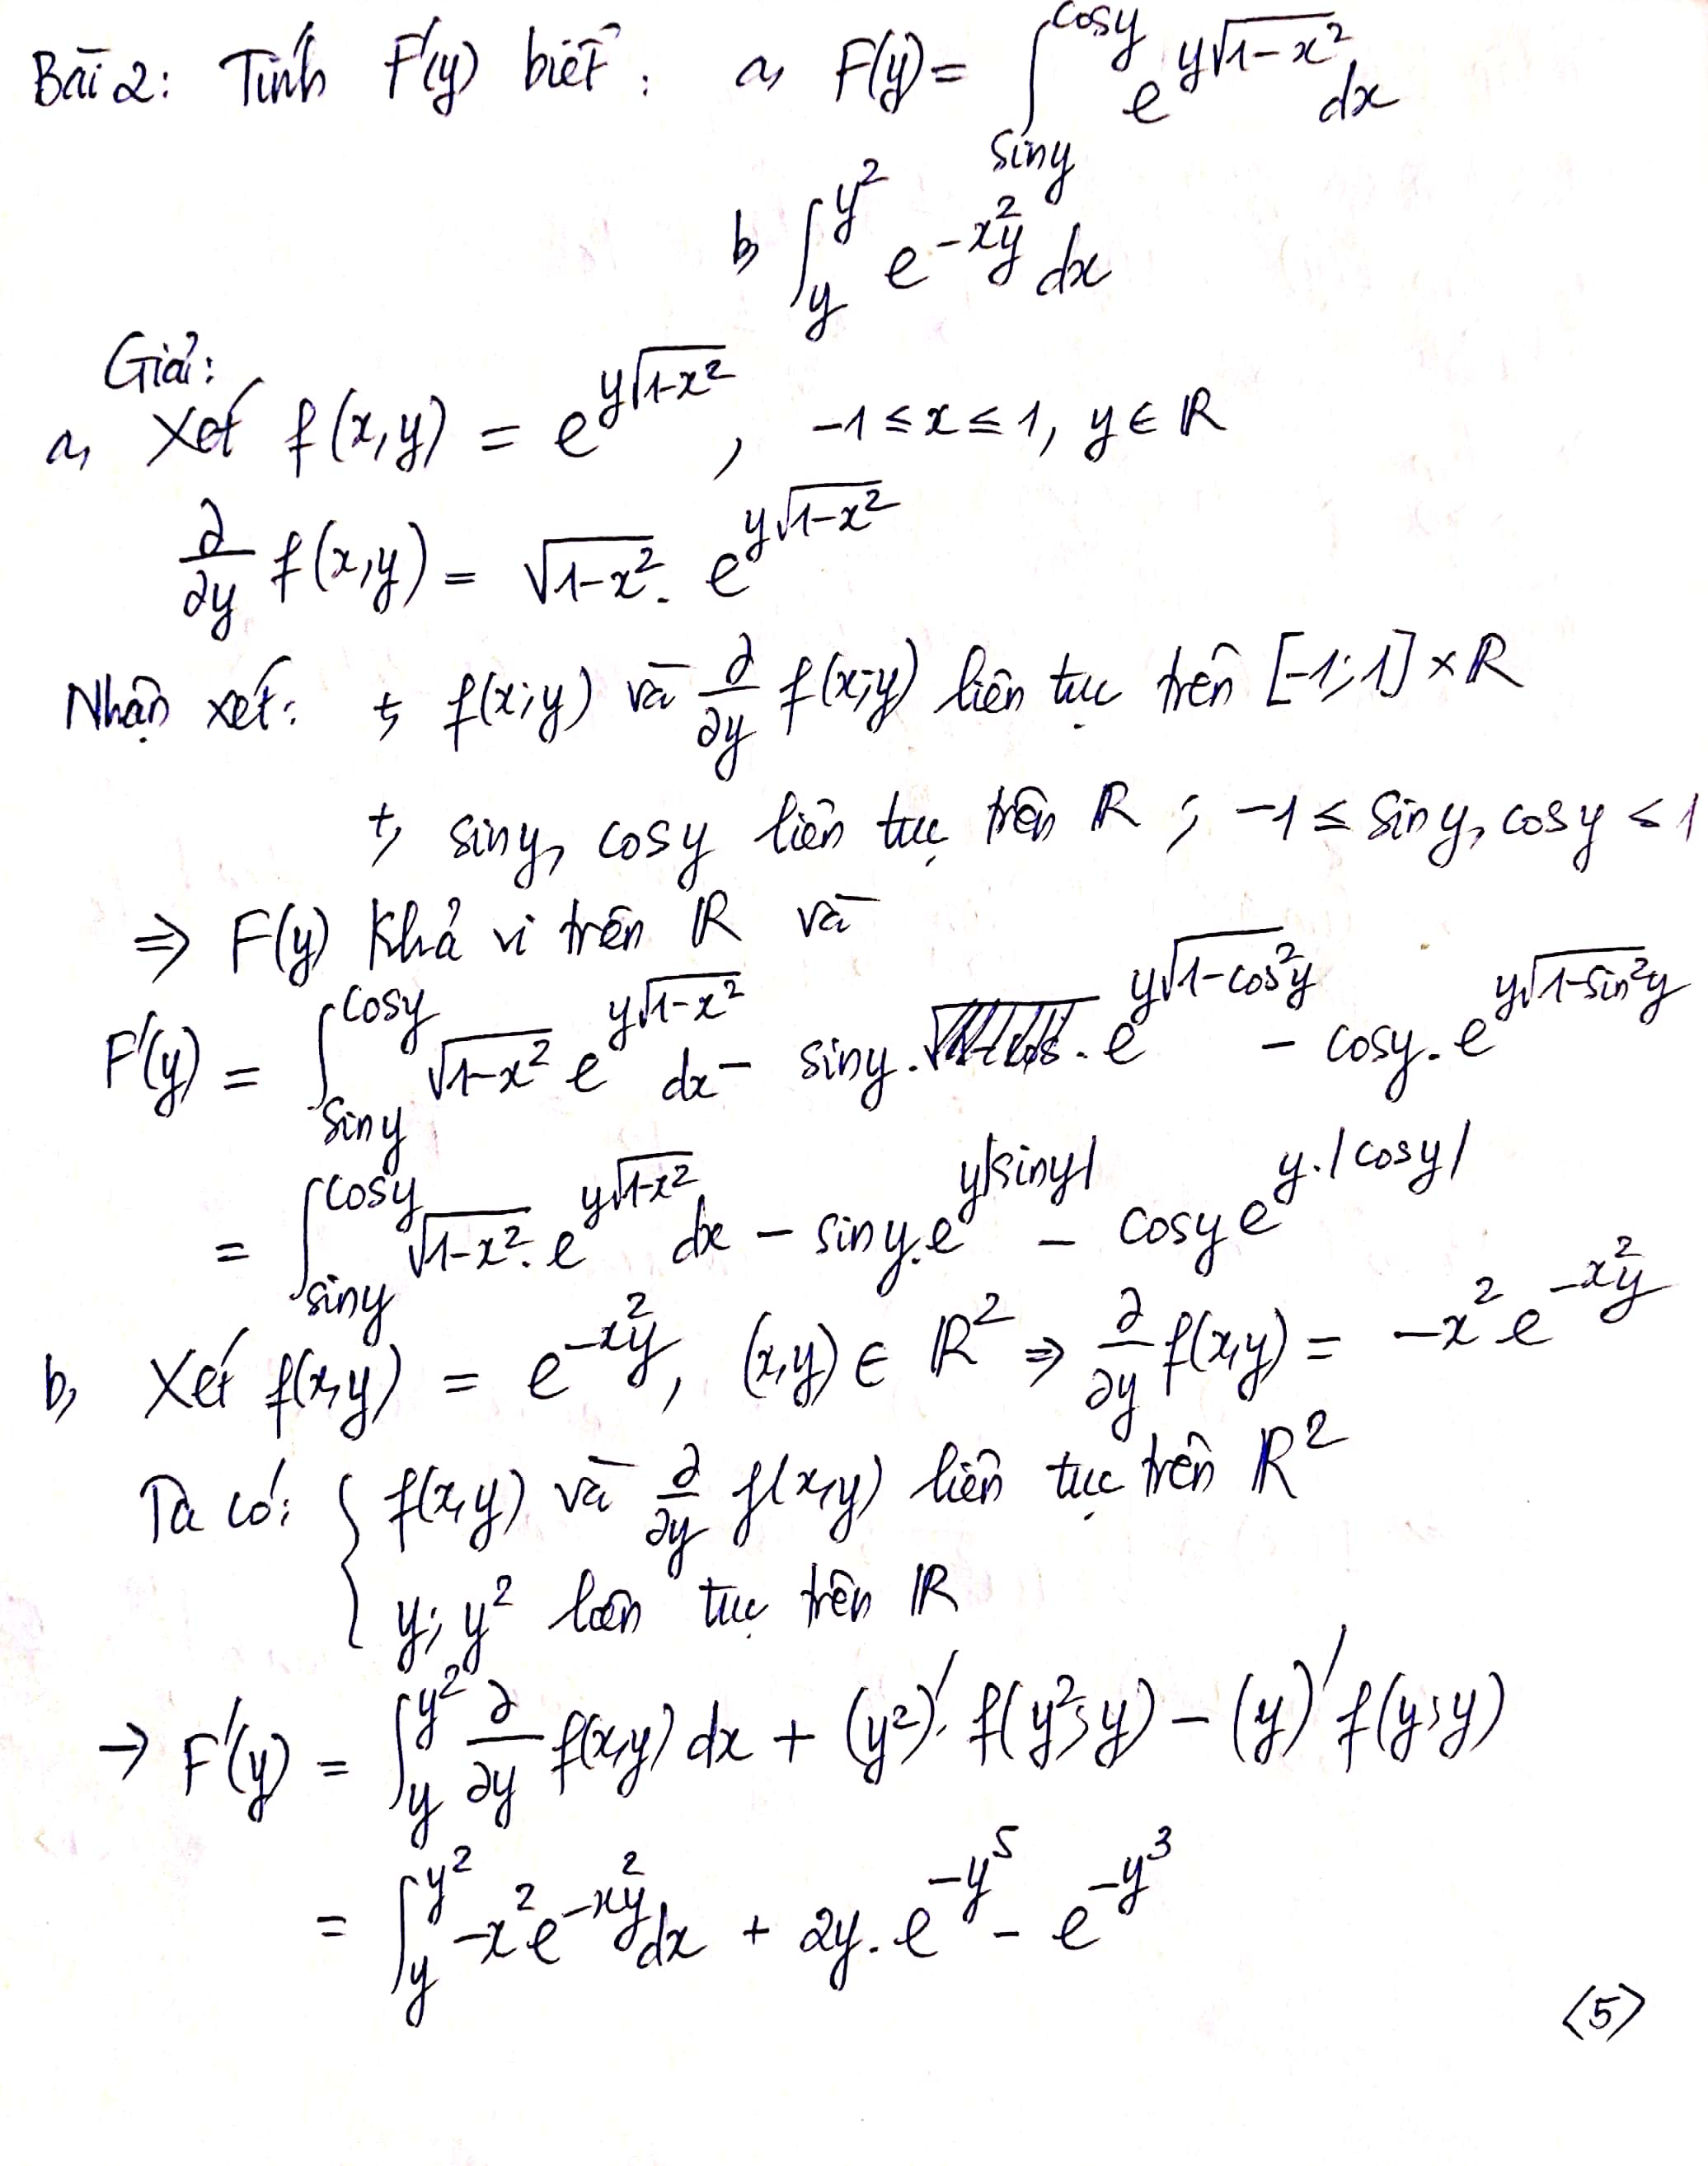 Bài 2: Tính F'(y) biết: a, F(y) = ∫_{siny}^{cosy} e^{y√(1-x²)} dx
b, ∫_y^{y²} e^{-x²y} dx
Giải:
a, Xét f(x,y) = e^{y√(1-x²)}, -1 ≤ x ≤ 1, y ∈ ℝ
∂/∂y f(x,y) = √(1-x²). e^{y√(1-x²)}
Nhận xét: +, f(x;y) và ∂/∂y f(x;y) liên tục trên [-1;1] × ℝ
+, siny, cosy liên tục trên ℝ ; -1 ≤ siny, cosy ≤ 1
⇒ F(y) khả vi trên ℝ và
F'(y) = ∫_{siny}^{cosy} √(1-x²) e^{y√(1-x²)} dx - siny. e^{y√(1-cos²y)} - cosy. e^{y√(1-sin²y)}
= ∫_{siny}^{cosy} √(1-x²). e^{y√(1-x²)} dx - siny. e^{y|siny|} - cosy e^{y.|cosy|}
b, Xét f(x,y) = e^{-x²y}, (x,y) ∈ ℝ² ⇒ ∂/∂y f(x,y) = -x² e^{-x²y}
Ta có: { f(x,y) và ∂/∂y f(x,y) liên tục trên ℝ²
y; y² liên tục trên ℝ
→ F'(y) = ∫_y^{y²} ∂/∂y f(x,y) dx + (y²)'. f(y²;y) - (y)' f(y;y)
= ∫_y^{y²} -x² e^{-x²y} dx + 2y. e^{-y⁵} - e^{-y³}
<5>